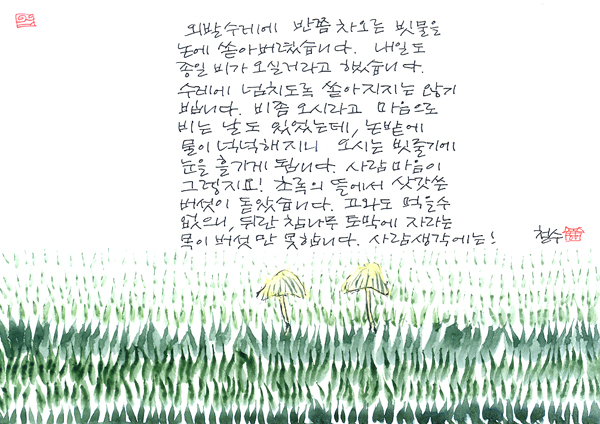 외발수레에 반쯤 차오른 빗물을
논에 쏟아버렸습니다. 내일도
종일 비가 오실거라고 했습니다.
수레에 넘치도록 쏟아지지는 않기
바랍니다. 비쯤 오시라고 마음으로
비는 날도 있었는데, 논밭에
물이 넉넉해지니 오시는 빗줄기에
눈을 흘기게 됩니다. 사람 마음이
그렇지요! 초록의 뜰에서 삿갓쓴
버섯이 돋았습니다. 고와도 먹을수
없으니, 뒤란 참나무 토막에 자라는
목이 버섯만 못합니다. 사람생각에는!
철수